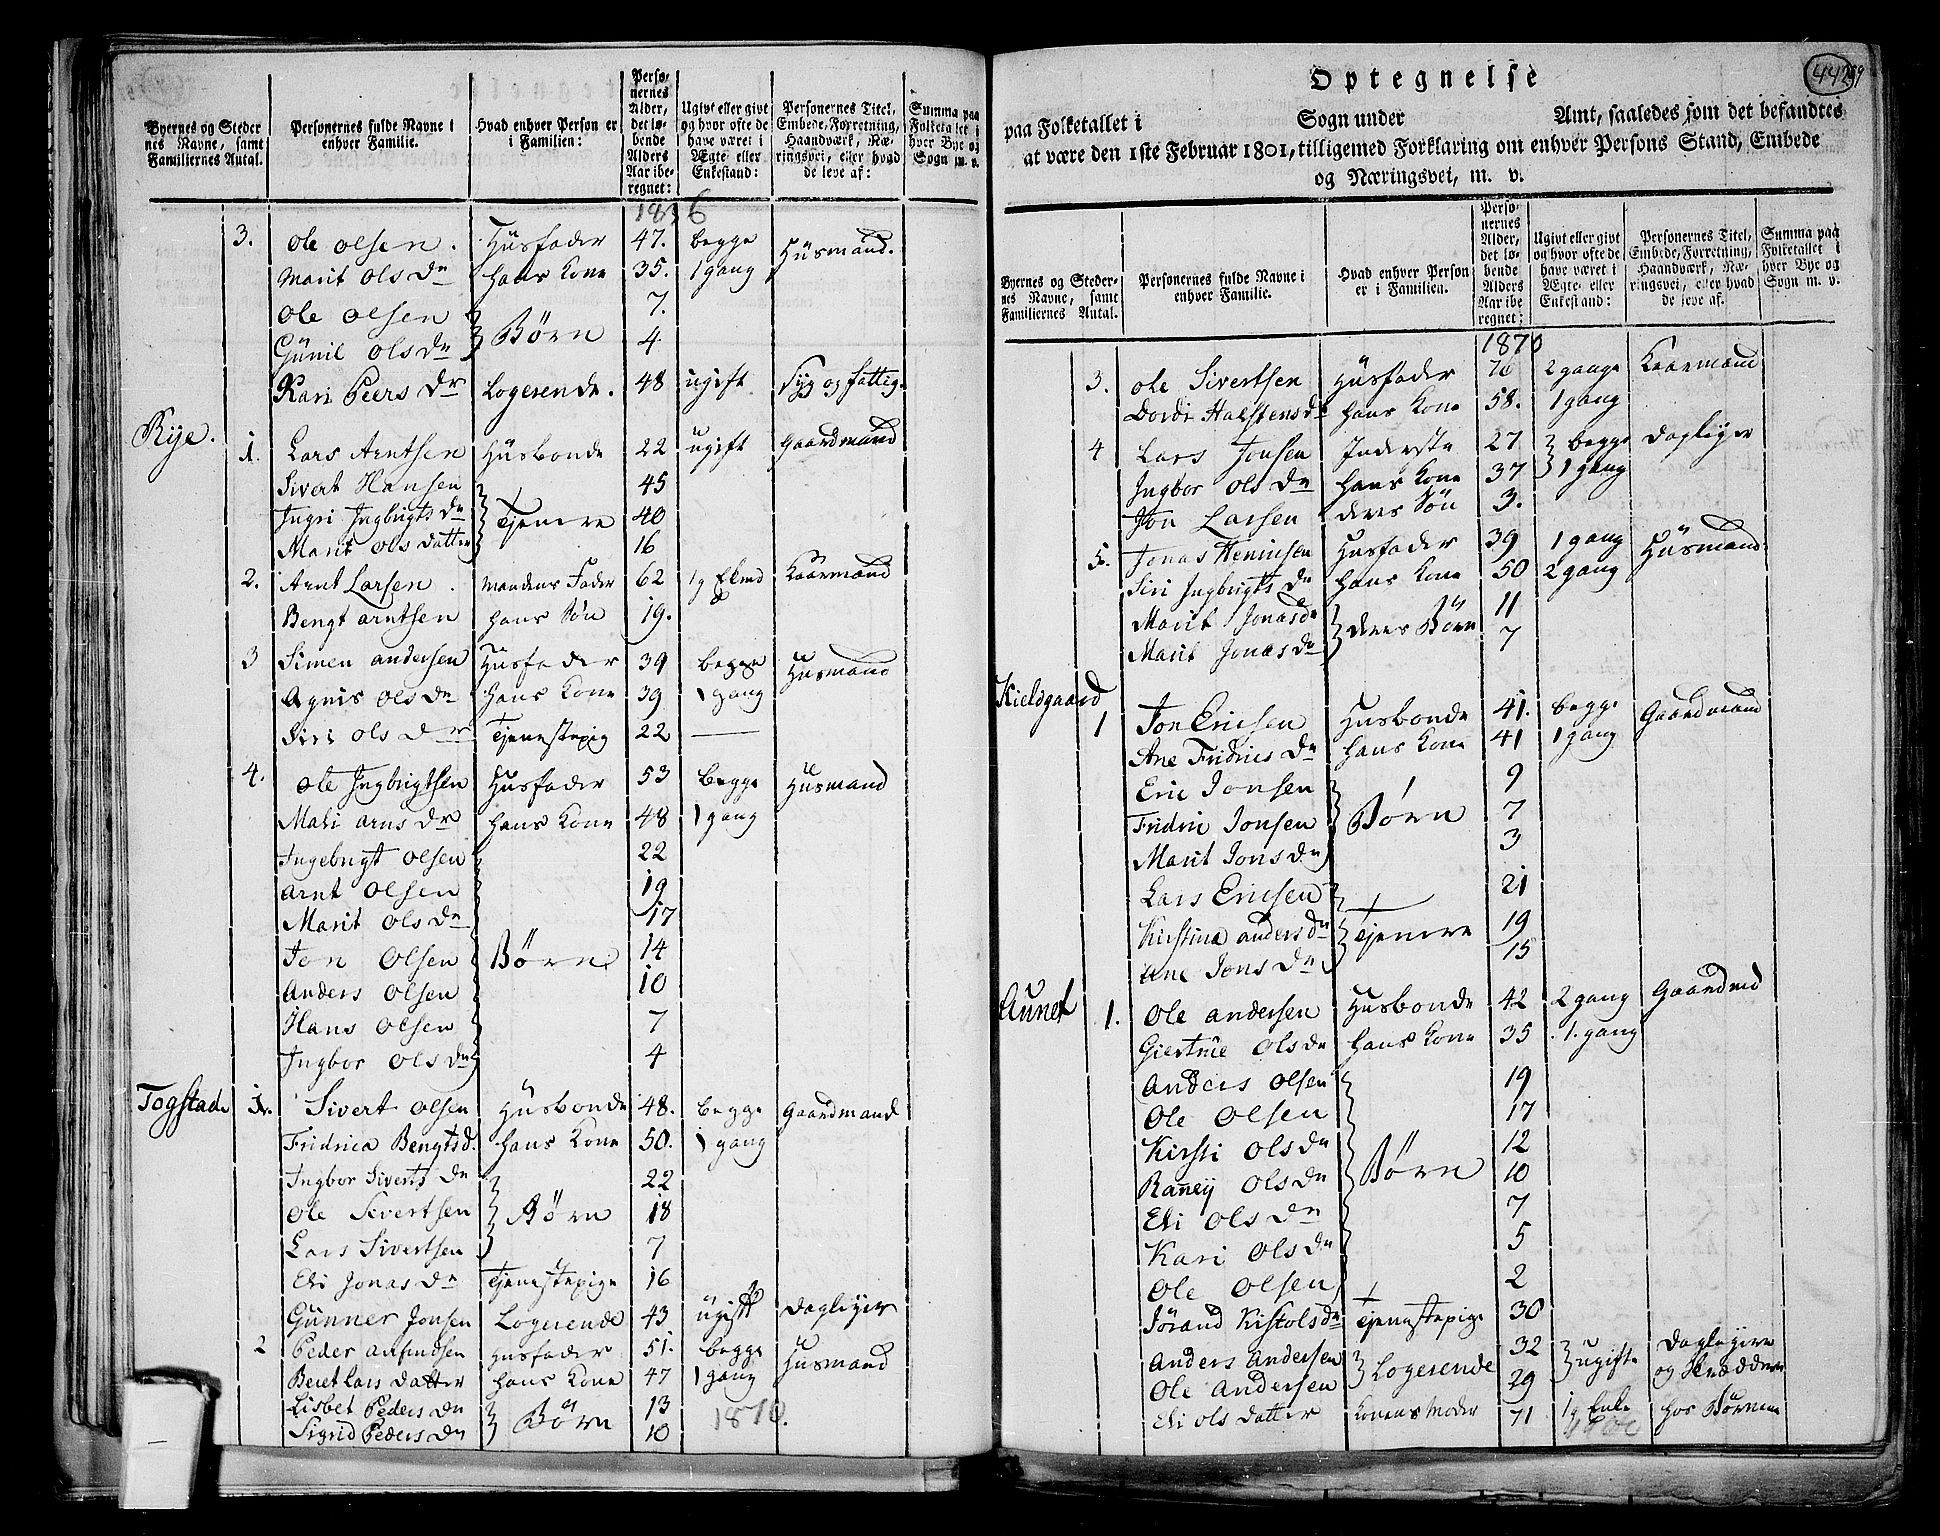 Byernes og Steder
nes Navne, samt
Familiernes Antal.
Personernes fulde Navne i
enhver Familie.
Hvad enhver Person er
i Familien:
Perso-
nernes
Alder,
det lø-
bende
Alders
Aar ibe-
regnet:
Ugivt eller givt
og hvor ofte de
have været i
Ægte- eller
Enkestand:
Personernes Titel,
Embede, Forretning,
Haandværk, Næ-
ringsvei, eller hvad
de leve af:
Summa paa
Folketallet i
hver Bye og
Sogn m. v.
1836
3. Ole Olsen. Husfader 47. begge Huusmand.
Marit Ols Dr hans Kone 35. 1 gang
Ole Olsen 7.
Gunil Ols Dr Børn 4
Kari Peers Dr Logerende. 48 ugift Syg og fattig
Rye. 1. Lars Arntsen Husbonde 22 ugift Gaardmand
Sivert Hansen 45
Ingri Ingbrigts Dr Tjenere 40
Marit Ols datter 16
2. Arnt Larsen. Mandens Fader 62 1 g Ekmd Kaarmand
Bengt Arntsen hans Søn 19.
3 Simen Andersen Husfader 39 begge Husmand
Agnis Ols Dr hans Kone 39 1 gang
Siri Ols Dr Tjenestepig 22
4. Ole Ingbrigtsen Husfader 53 begge Husmand
Mali Arns Dr hans Kone 48 1 gang
Ingebrigt Olsen 22
Arnt Olsen 19
Marit Ols Dr 17
Jon Olsen Børn 14
Anders Olsen 10
Hans Olsen 7
Ingbor Ols Dr 4
Togstad 1. Sivert Olsen Husbonde 48. begge Gaardmand
Fridrica Bengtsd. hans Kone 50. 1 gang
Ingbor Siverts Dr 22
Ole Sivertsen Børn 18
Lars Sivertsen 7
Eli Jonas Dr Tjenestepige 16
Gunner Jonsen Logerende 43 ugift Dagleyer
2 Peder Anfindsen Husfader 51. begge Husmand
Beret Lars Datter hans Kone 47 1 gang
Lisbet Peders Dr Børn 13
Sigrid Peders Dr 10
1870.
44259
Optegnelse
paa Folketallet i Sogn under Amt, saaledes som det befandtes
at være den 1ste Februar 1801, tilligemed Forklaring om enhver Persons Stand, Embede
og Næringsvei, m. v.
Byernes og Steder-
nes Navne, samt
Familiernes Antal.
Personernes fulde Navne i
enhver Familie.
Hvad enhver Person
er i Familien.
Perso-
nernes
Alder,
det lø-
bende
Alders
Aar ibe-
regnet:
Ugivt eller givt
og hvor ofte de
have været i
Ægte- eller
Enkestand:
Personernes Titel,
Embede, Forretning,
Haandværk, Næ-
ringsvei, eller hvad
de leve af.
Summa paa
Folketallet i
hver Bye og
Sogn m. v.
1870
3. Ole Sivertsen Husfader 76 2 gange Kaarmand
Dordi Halstensdr hans Kone 58. 1 gang
4 Lars Jonsen Inderste 27 begge Dagleyer
Ingbor Ols Dr hans Kone 37 1 gang
Jon Larsen deres Søn 3.
5. Jonas Heminsen Husfader 39 1 gang Husmand
Siri Ingbrigts Dr hans Kone 50 2 gang
Marit Jonasdr deres Børn 11
Marit Jonas Dr 7
Kieldgaard 1 Jon Ericsen Husbonde 41. begge Gaardmand
Ane Fridrics Dr hans Kone 41 1 gang
Eric Jonsen 9
Fridric Jonsen Børn 7
Marit Jons Dr 3
Lars Ericsen 21
Kirstina Anders Dr Tjenere 19
Ane Jons Dr 15
Aunet 1. Ole Andersen Husbonde 42 2 gang Gaardmd
Giertrue Ols Dr hans Kone 35 1. gang
Anders Olsen 19
Ole Olsen 17
Kirsti Ols Dr 12
Ranney Ols Dr Børn 10
Eli Ols Dr 7
Kari Ols Dr 5
Ole Olsen 2
Jørand Kistols Dr Tjenestepige 30
Anders Andersen Logerende 32 ugifte Dagleyere
Ole Andersen 29 og Skræddere
Eli Ols datter Konens Moder 71 1 g Enke hos Børnene